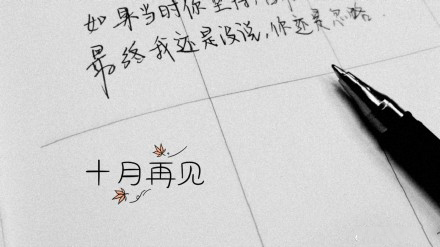 如果当时你坚持，
最终我还是没说，你还是忽略.
十月再见